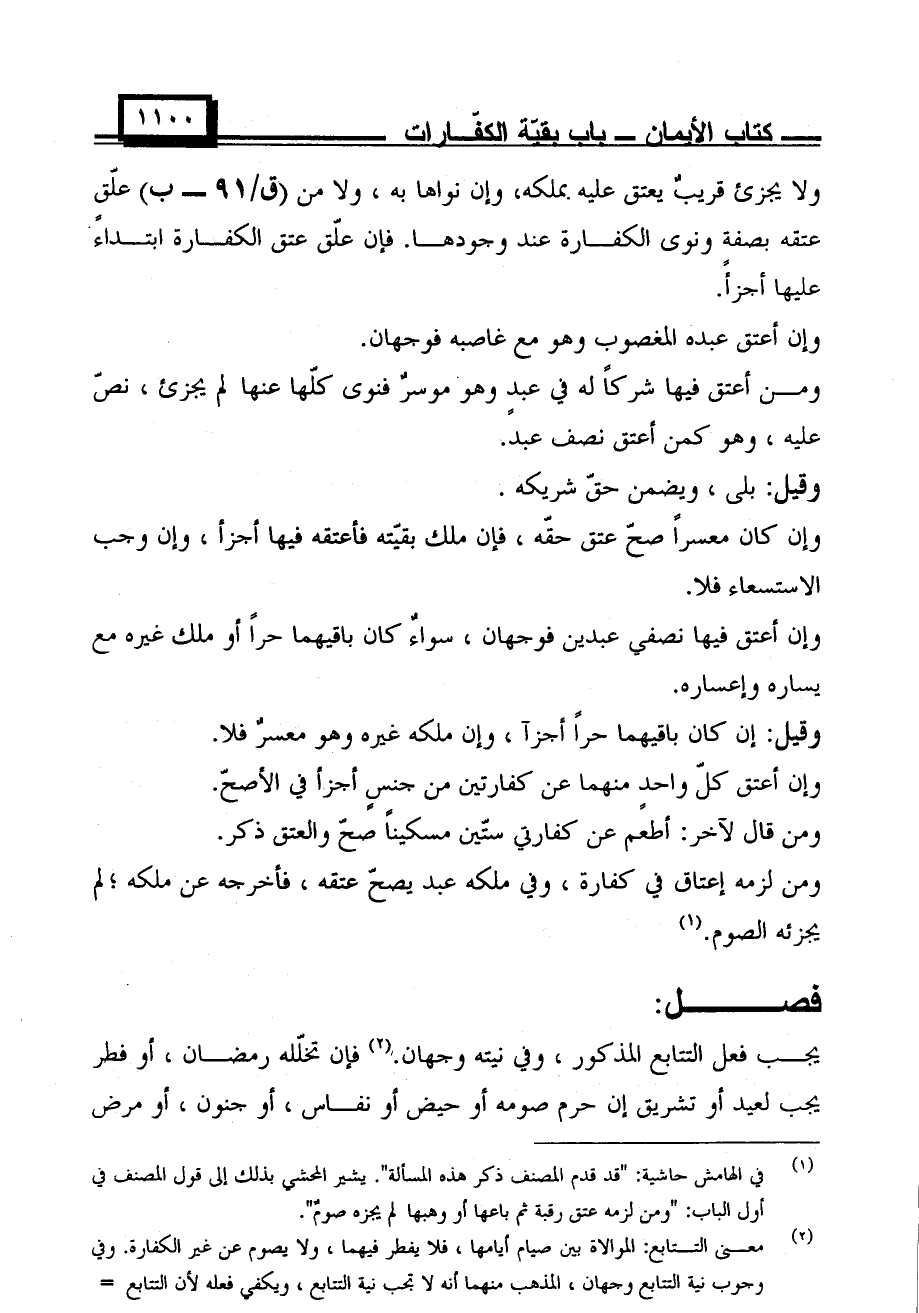 كتاب الأيمان – باب بقيّة الكفّارات
١١٠٠
ولا يجزئ قريبٌ يعتق عليه بملكه، وإن نواها به ، ولا من (ق/٩١ – ب) علّق
عتقه بصفة ونوى الكفارة عند وجودها. فإن علّق عتق الكفارة ابتداءً
عليها أجزأ.
وإن أعتق عبده المغصوب وهو مع غاصبه فوجهان.
ومن أعتق فيها شركاً له في عبدٍ وهو موسرٌ فنوى كلّها عنها لم يجزئ ، نصّ
عليه ، وهو كمن أعتق نصف عبد.
وقيل: بلى ، ويضمن حقّ شريكه .
وإن كان معسراً صحّ عتق حقّه ، فإن ملك بقيّته فأعتقه فيها أجزأ ، وإن وجب
الاستسعاء فلا.
وإن أعتق فيها نصفي عبدين فوجهان ، سواءٌ كان باقيهما حراً أو ملك غيره مع
يساره وإعساره.
وقيل: إن كان باقيهما حراً أجزآ ، وإن ملكه غيره وهو معسرٌ فلا.
وإن أعتق كلّ واحدٍ منهما عن كفارتين من جنسٍ أجزأ في الأصحّ.
ومن قال لآخر: أطعم عن كفارتي ستّين مسكيناً صحّ والعتق ذكر.
ومن لزمه إعتاق في كفارة ، وفي ملكه عبد يصحّ عتقه ، فأخرجه عن ملكه ؛لم
يجزئه الصوم.(١)
فصل:
يجب فعل التتابع المذكور ، وفي نيته وجهان.(٢) فإن تخلّله رمضان ، أو فطر
يجب لعيد أو تشريق إن حرم صومه أو حيض أو نفاس ، أو جنون ، أو مرض
(١) في الهامش حاشية: "قد قدم المصنف ذكر هذه المسألة". يشير المحشي بذلك إلى قول المصنف في
أول الباب: "ومن لزمه عتق رقبة ثم باعها أو وهبها لم يجزه صومٌ".
(٢) معنى التتابع: الموالاة بين صيام أيامها ، فلا يفطر فيهما ، ولا يصوم عن غير الكفارة. وفي
وجوب نية التتابع وجهان ، المذهب منهما أنه لا تجب نية التتابع ، ويكفي فعله لأن التتابع =